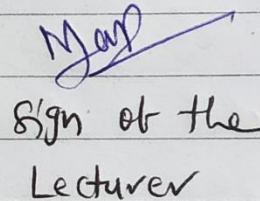 Sign of the
Lecturer